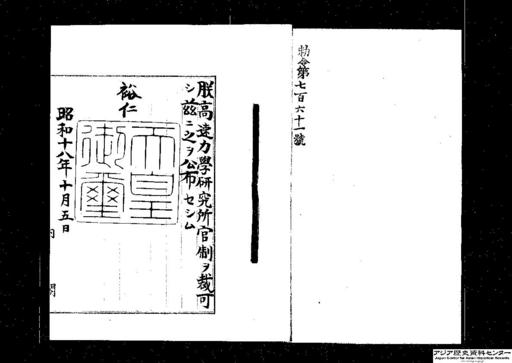 勅令第七百六十一號
朕高速力學研究所官制ヲ裁可
シ茲ニ之ヲ公布セシム
裕仁
天皇
御璽
昭和十八年十月五日
内閣
アジア歴史資料センター
Japan Center for Asian Historical Records